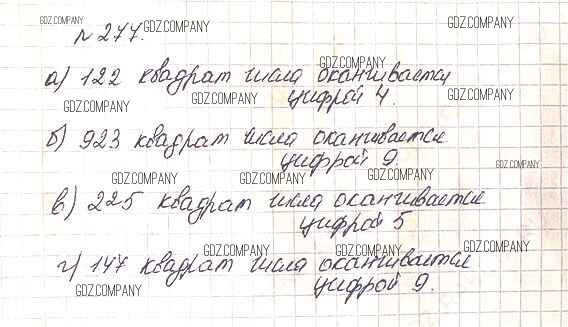 GDZ.COMPANY GDZ.COMPANY GDZ.COMPANY
№ 277.
GDZ.COMPANY
а) 122 квадрат числа оканчивается
GDZ.COMPANY GDZ.COMPANY цифрой 4. GDZ.COMPANY
б) 923 квадрат числа оканчивается
цифрой 9. GDZ.COMPANY
GDZ.COMPANY GDZ.COMPANY GDZ.COMPANY
в) 225 квадрат числа оканчивается
цифрой 5
GDZ.COMPANY GDZ.COMPANY GDZ.COMPANY
г) 147 квадрат числа оканчивается
GDZ.COMPANY цифрой 9.